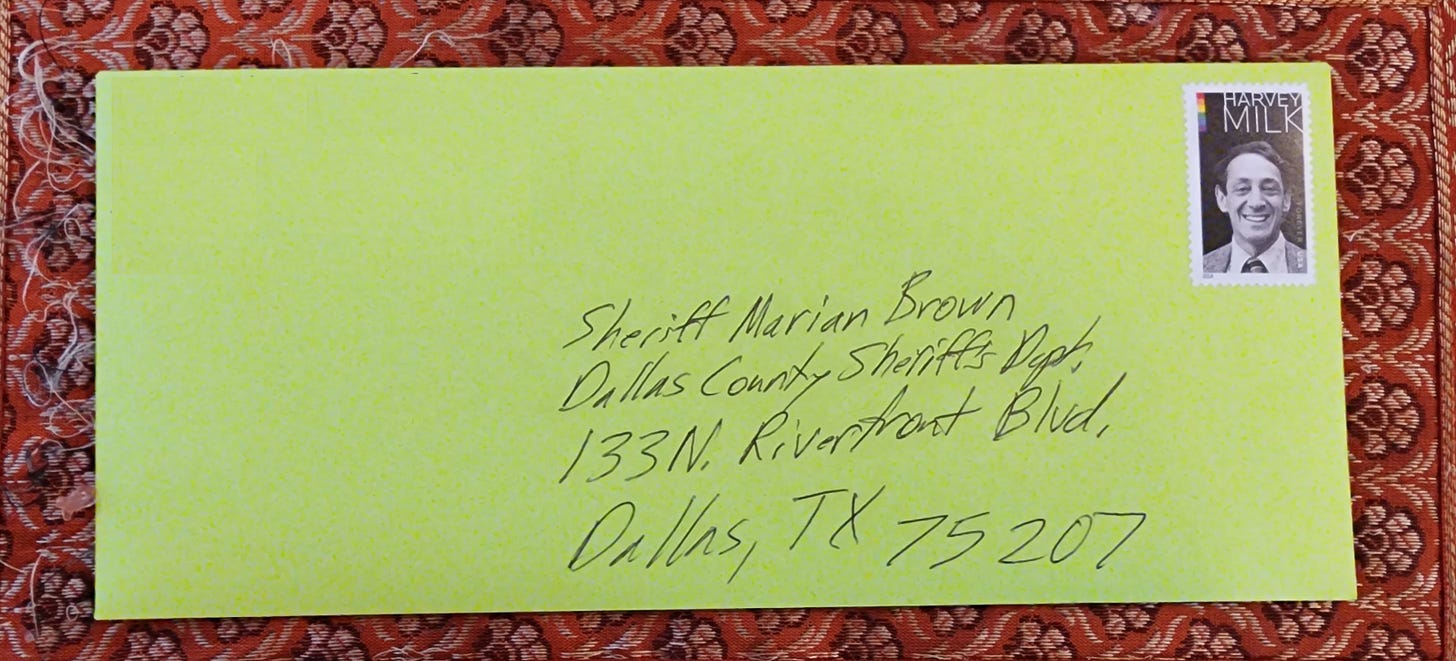 HARVEY
MILK
Sheriff Marian Brown
Dallas County Sheriff's Dept.
133 N. Riverfront Blvd.
Dallas, TX 75207